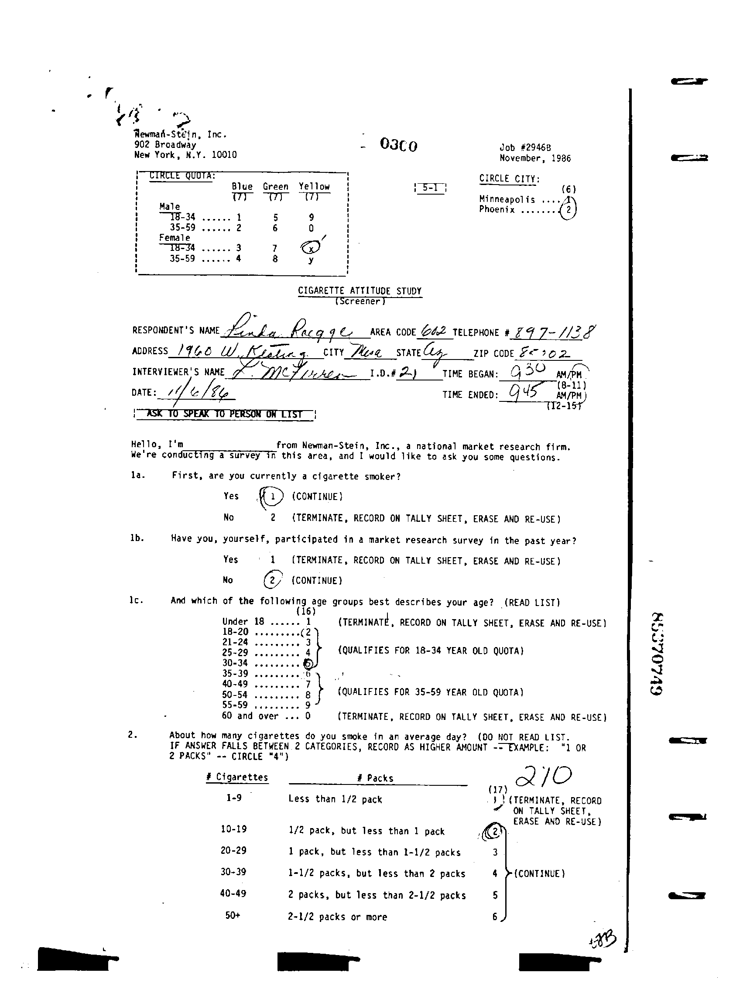 Newman-Stein, Inc.
902 Broadway
New York, N.Y. 10010
0300
Job #2946B
November, 1986
CIRCLE QUOTA:
Blue Green Yellow
(7) (7) (7)
Male
18-34 ...... 1 5 9
35-59 ...... 2 6 0
Female
18-34 ...... 3 7 x
35-59 ...... 4 8 y
5-1
CIRCLE CITY:
(6)
Minneapolis .... 1
Phoenix ....... 2
CIGARETTE ATTITUDE STUDY
(Screener)
RESPONDENT'S NAME Linda AREA CODE 602 TELEPHONE # 897-1138
ADDRESS 1960 W. Keating CITY Mesa STATE Az ZIP CODE 85202
INTERVIEWER'S NAME L. I.D.# 21 TIME BEGAN: 930 AM/PM
(8-11)
DATE: 11/6/86 TIME ENDED: 945 AM/PM
(12-15)
ASK TO SPEAK TO PERSON ON LIST
Hello, I'm ____________ from Newman-Stein, Inc., a national market research firm.
We're conducting a survey in this area, and I would like to ask you some questions.
1a. First, are you currently a cigarette smoker?
Yes 1 (CONTINUE)
No 2 (TERMINATE, RECORD ON TALLY SHEET, ERASE AND RE-USE)
1b. Have you, yourself, participated in a market research survey in the past year?
Yes 1 (TERMINATE, RECORD ON TALLY SHEET, ERASE AND RE-USE)
No 2 (CONTINUE)
1c. And which of the following age groups best describes your age? (READ LIST)
(16)
Under 18 ...... 1 (TERMINATE, RECORD ON TALLY SHEET, ERASE AND RE-USE)
18-20 ......... 2
21-24 ......... 3
25-29 ......... 4 (QUALIFIES FOR 18-34 YEAR OLD QUOTA)
30-34 ......... 5
35-39 ......... 6
40-49 ......... 7
50-54 ......... 8 (QUALIFIES FOR 35-59 YEAR OLD QUOTA)
55-59 ......... 9
60 and over ... 0 (TERMINATE, RECORD ON TALLY SHEET, ERASE AND RE-USE)
2. About how many cigarettes do you smoke in an average day? (DO NOT READ LIST.
IF ANSWER FALLS BETWEEN 2 CATEGORIES, RECORD AS HIGHER AMOUNT -- EXAMPLE: "1 OR
2 PACKS" -- CIRCLE "4")
210
# Cigarettes # Packs
(17)
1-9 Less than 1/2 pack 1 (TERMINATE, RECORD
ON TALLY SHEET,
ERASE AND RE-USE)
10-19 1/2 pack, but less than 1 pack 2
20-29 1 pack, but less than 1-1/2 packs 3
30-39 1-1/2 packs, but less than 2 packs 4 (CONTINUE)
40-49 2 packs, but less than 2-1/2 packs 5
50+ 2-1/2 packs or more 6
85370749